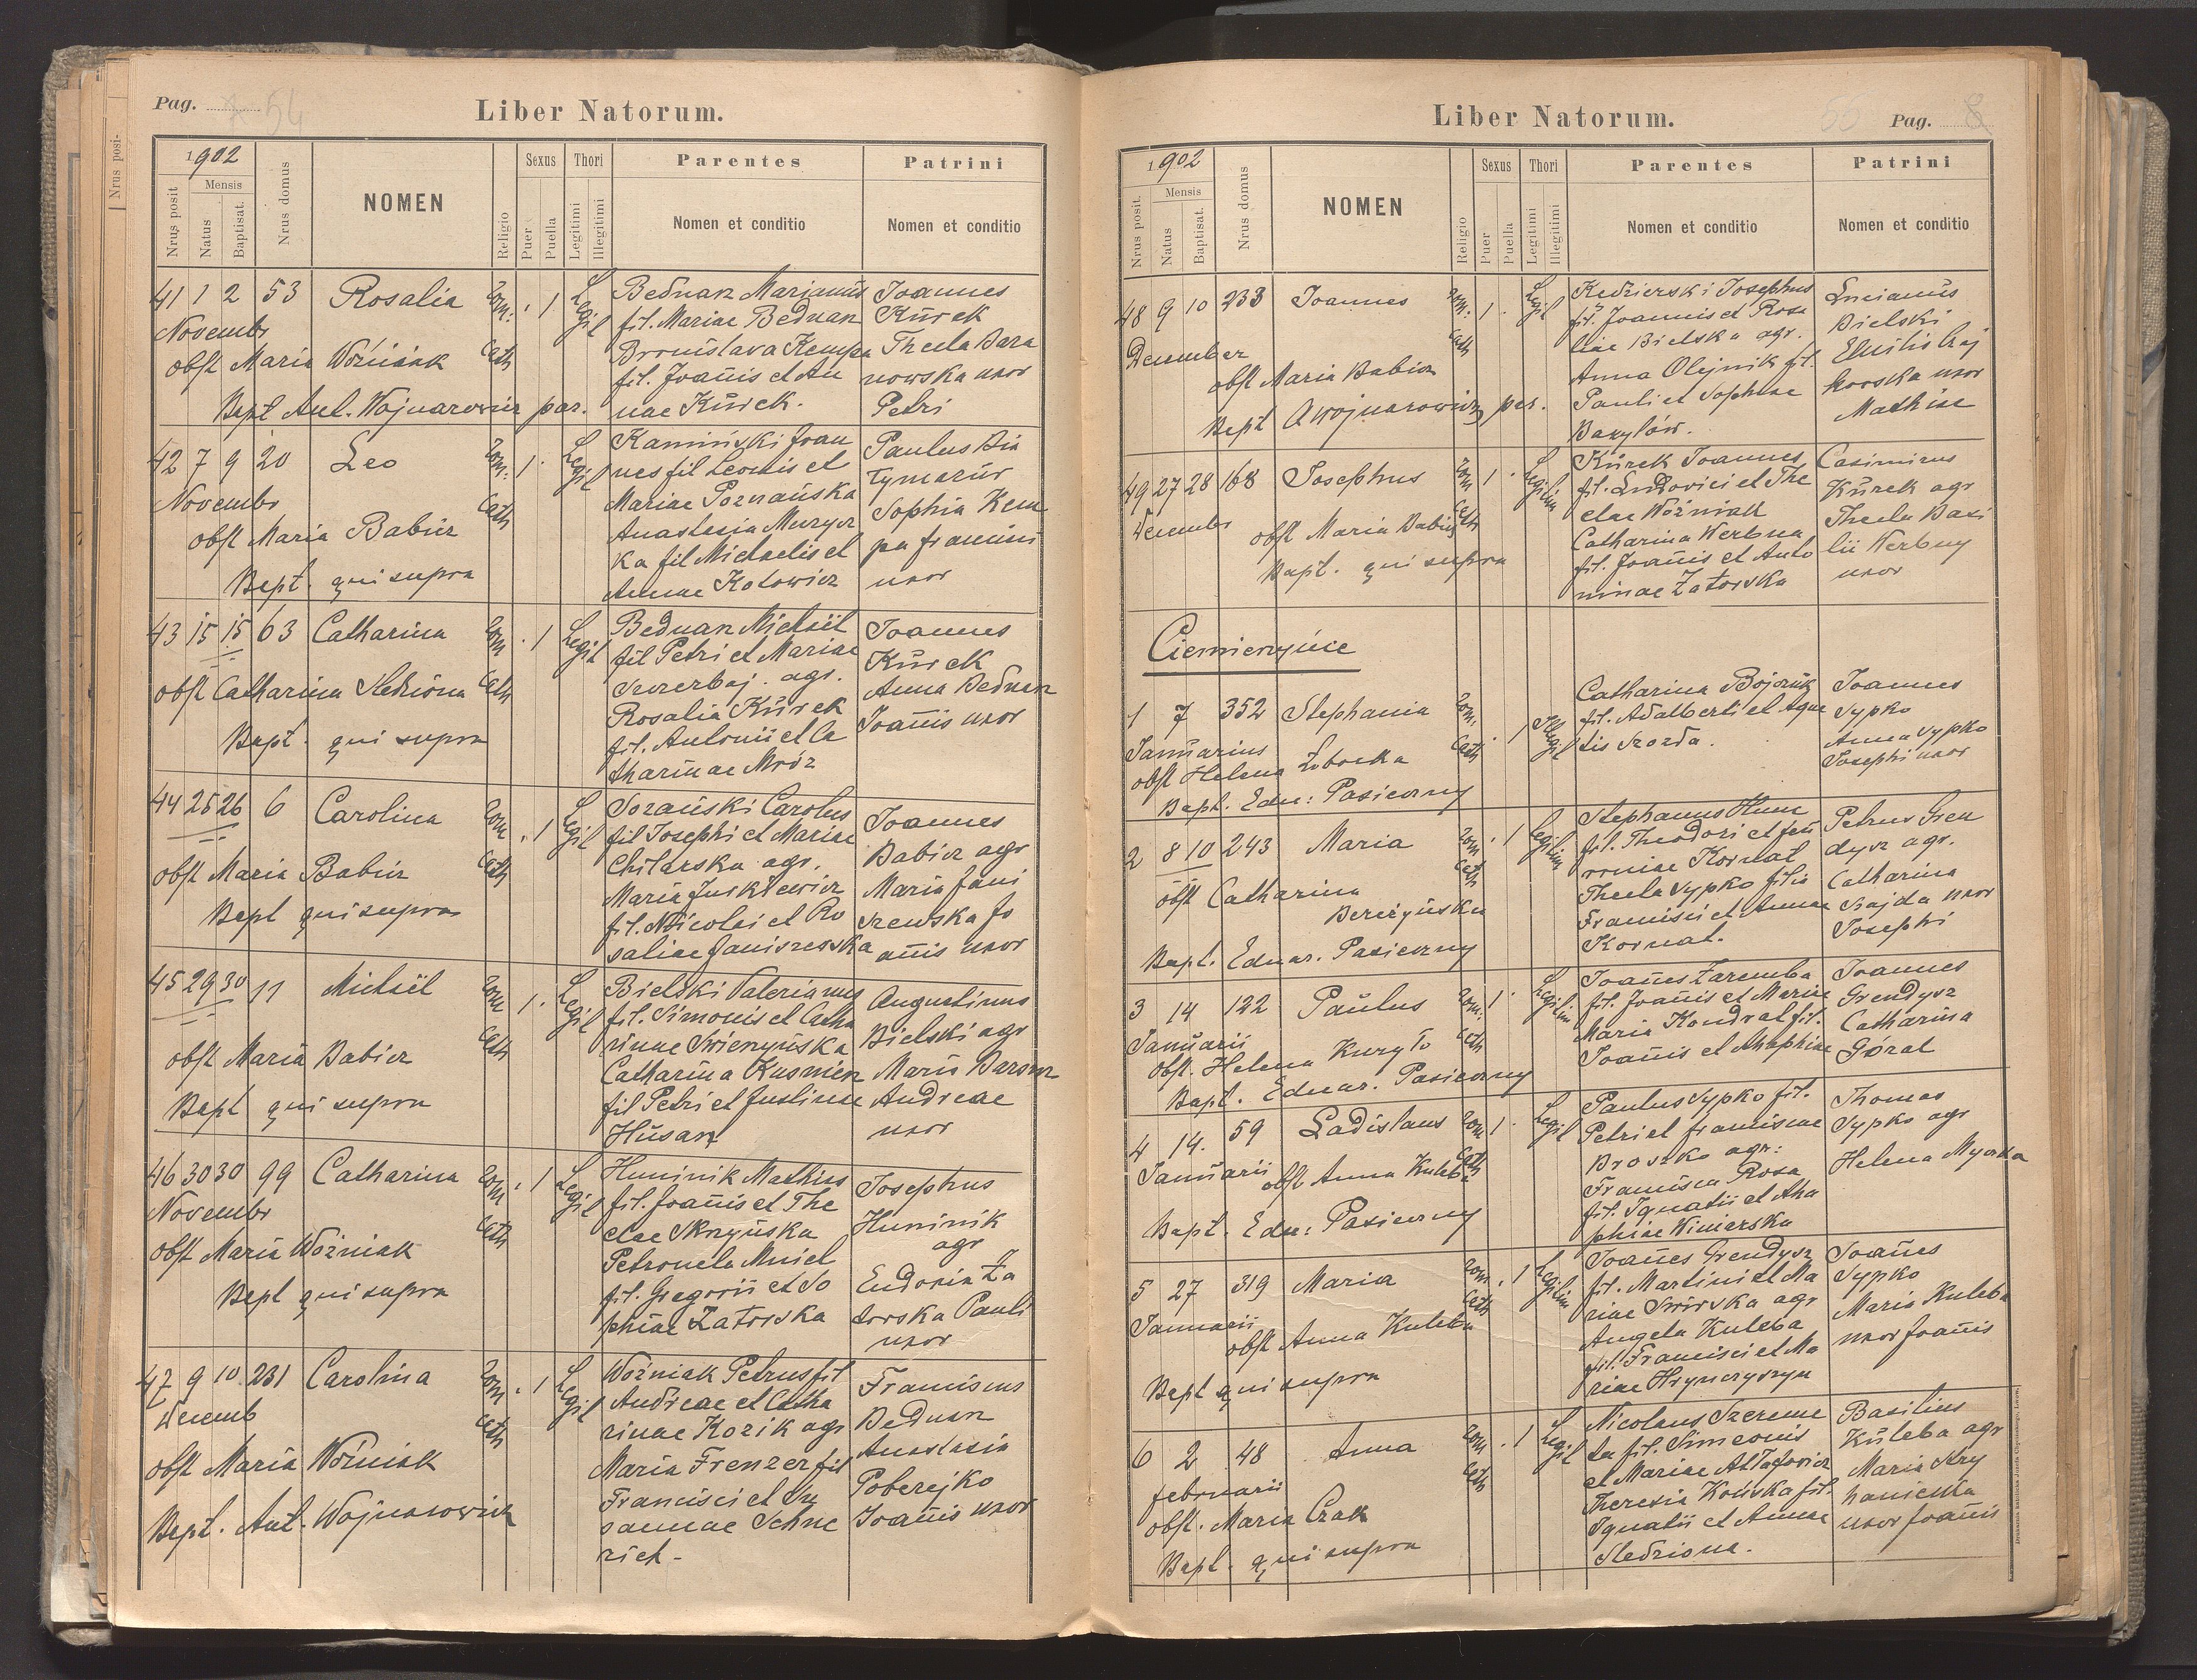 Pag. 54
Liber Natorum.
1902
Nrus posit
Mensis
Natus
Baptisat.
Nrus domus
NOMEN
Religio
Sexus
Puer
Puella
Thori
Legitimi
Illegitimi
Parentes
Nomen et conditio
Patrini
Nomen et conditio
41 1 2 53 Rosalia Rom. Cath . 1 Legit
Novembr
obst Maria Woźniak
Bapt Ant. Wojnarowicz par.
Bednarz Marianus
fil. Mariae Bednarz
Bronislava Kempa
fil. Joannis et An
nae Kurek.
Joannes
Kurek
Thecla Bara
nowska uxor
Petri
42 7 9 20 Leo Rom. Cath 1 . Legit
Novembr
obst Maria Babicz
Bapt. qui supra
Kamiński Joan
nes fil Leonis et
Mariae Poznańska
Anastasia Muzycz
ka fil Michaelis et
Annae Kotowicz
Paulus
Sophia Kem
pa Francisci
uxor
43 15 15 63 Catharina Rom Cath . 1 Legit
obst Catharina Sledziona
Bapt. qui supra
Bednarz Michaël
fil Petri et Mariae
Szczerbaj. agr.
Rosalia Kurek
fil. Antonii et Ca
tharinae Mróz
Joannes
Kurek
Anna Bednarz
Joannis uxor
44 25 26 6 Carolina Rom Cath . 1 Legit
obst Maria Babicz
Bapt qui supra
Sozański Carolus
fil Josephi et Mariae
Chilarska agr.
Maria Juskiewicz
fil. Nicolai et Ro
saliae Janiszewska
Joannes
Babicz agr
Maria Jani
szewska Jo
annis uxor
45 29 30 11 Michaël Rom Cath 1 . Legit
obst Maria Babicz
Bapt qui supra
Bielski Valerianus
fil. Simonis et Catha
rinae Swierzyńska
Catharina Kusnierz
fil Petri et Justinae
Husarz
Augustinus
Bielski agr
Maria
Andreae
uxor
46 30 30 99 Catharina Rom Cath . 1 Legit
Novembr
obst Maria Woźniak
Bapt qui supra
Huminik Mathias
fil. Joannis et The
clae Skrzyńska
Petronela Mniel
fil. Gregorii et So
phiae Zatorska
Josephus
Huminik
agr
Eudoxia Za
torska Pauli
uxor
47 9 10 231 Carolina Rom Cath . 1 Legit
Decemb
obst Maria Woźniak
Bapt. Ant. Wojnarowicz
Woźniak Petrus fil
Andreae et Catha
rinae Kozik agr
Maria Frenzer fil
Francisci et Su
sannae Schne
rich.
Franciscus
Bednarz
Anastasia
Poberejko
Joannis uxor
Liber Natorum.
55 Pag. 8
1902
Nrus posit.
Mensis
Natus
Baptisat.
Nrus domus
NOMEN
Religio
Sexus
Puer
Puella
Thori
Legitimi
Illegitimi
Parentes
Nomen et conditio
Patrini
Nomen et conditio
48 9 10 233 Joannes Rom. Cath 1 . Legit
December
obst Maria Babicz
Bapt A Wojnarowicz par.
Kedzierski Josephus
fil. Joannis et Rosa
liae Bielska agr.
Anna Olejnik fil.
Pauli et Sophiae
Bazylów.
Lucianus
Bielski
Emilia Zaj
kowska uxor
Mathiae
49 27 28 168 Josephus Rom Cath 1 . Legitim
Decembr
obst Maria Babicz
Bapt. qui supra
Kurek Joannes
fil. Ludovici et The
clae Woźniak
Catharina Werbna
fil. Joannis et Anto
ninae Zatorska
Casimirus
Kurek agr
Thecla Basi
lii Werbny
uxor
Ciemierzyńce
1 7 352 Stephania Rom. Cath . 1 Illegit
Januarius
obst Helena Zubocka
Bapt. Edu: Pasieczny
Catharina Bojczuk
fil. Adalberti et Agne
tis Szozda.
Joannes
Sypko
Anna Sypko
Josephi uxor
2 8 10 243 Maria Rom Cath . 1 Legitim
obst Catharina
Berezyńska
Bapt. Eduar. Pasieczny
Stephanus Hum
fil. Theodori et Feu
roniae Kornat
Thecla Sypko filia
Francisci et Annae
Kornat.
Petrus Gren
dysz agr.
Catharina
Szajda uxor
Josephi
3 14 122 Paulus Rom. Cath 1 . Legitim
Januarii
Obst. Helena Kuryło
Bapt. Eduar. Pasieczny
Joannes Zaremba
fil. Joannis et Mariae
Maria Kondrat fil.
Joannis et Ahaphiae
Joannes
Grendysz
Catharina
Góral
4 14. 59 Ladislaus Rom Cath 1 . Legit
Januarii obst Anna Kuleba
Bapt. Edu: Pasieczny
Paulus Sypko fil.
Petri et Franciscae
Broszko agr:
Francisca Rosa
fil. Ignatii et Aha
phiae Winiarska
Thomas
Sypko agr
Helena Mycka
5 27 319 Maria Rom. Cath . 1 Legitim
Januarii
obst Anna Kuleba
Bapt qui supra
Joannes Grendysz
fil. Martini et Ma
riae Swirska agr
Angela Kuleba
fil. Francisci et Ma
riae Hrynczyszyn
Joannes
Sypko
Maria Kuleba
uxor Joannis
6 2 48 Anna Rom Cath . 1 Legit
Februarii
obst. Maria Czak
Bapt. qui supra
Nicolaus Szereme
ta fil. Simeonis
et Mariae
Theresia Końska fil.
Ignatii et Annae
Sledziona.
Basilius
Kuleba agr
Maria Kry
uxor Joannis